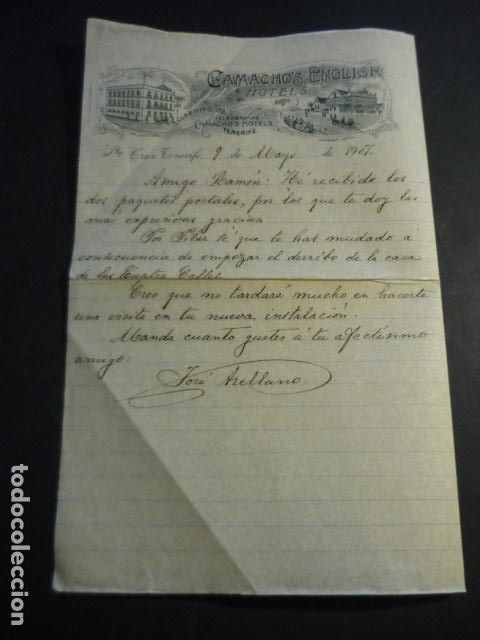 CAMACHO'S ENGLISH
HOTELS.
TELEGRAMAS
CAMACHO'S HOTELS
TENERIFE
Sta Cruz Tenerife 9 de Mayo de 1907.
Amigo Ramón: Hé recibido los
dos paquetes postales, por los que te doy las
mas expresivas gracias.
Por Pilar sé que te has mudado á
consecuencia de empezar el derribo de la casa
de las Cuatro Calles.
Creo que no tardaré mucho en hacerte
una visita en tu nueva instalación.
Manda cuanto gustes á tu afectísimo
amigo:
José Arellano.
todocoleccion